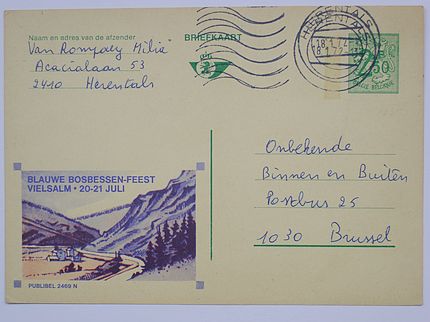 Naam en adres van de afzender
Van Rompaey Milia
Acacialaan 53
2410 Herentals
BRIEFKAART
HERENTALS
HERENTALS
18.1.72
50
BELGIE-BELGIQUE
BLAUWE BOSBESSEN-FEEST
VIELSALM • 20-21 JULI
PUBLIBEL 2469 N
Onbekende
Binnen en Buiten
Postbus 25
1030 Brussel